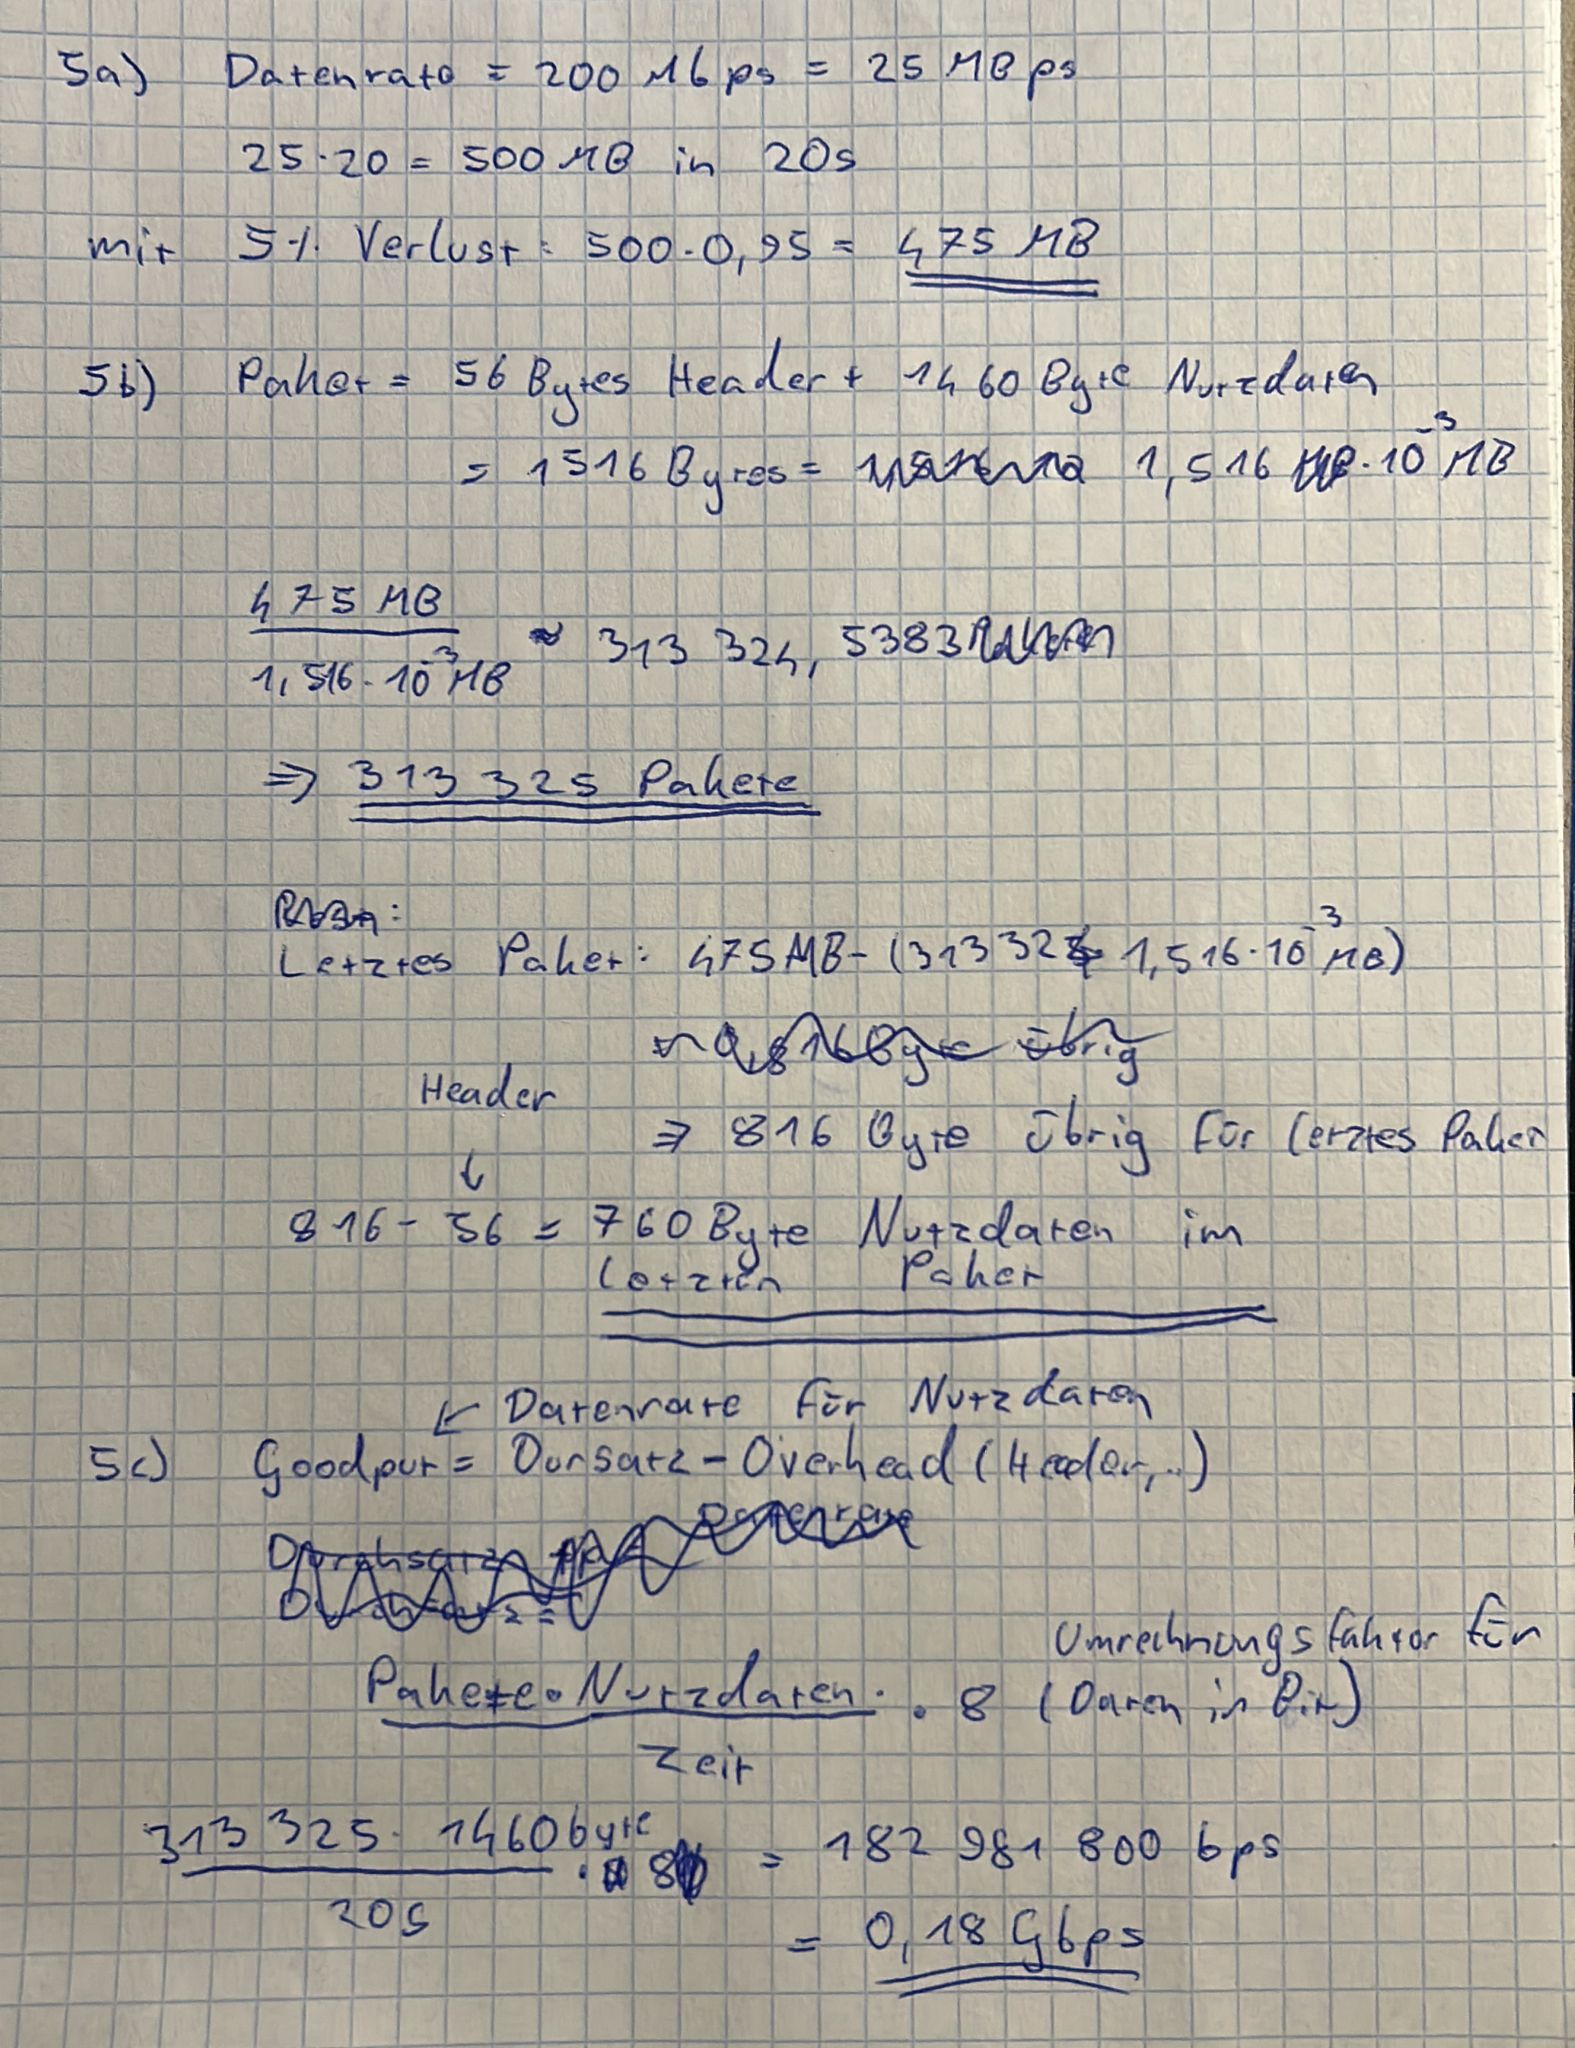 5a) Datenrate = 200 Mbps = 25 MBps
25·20 = 500 MB in 20s
mit 5% Verlust: 500·0,95 = 475 MB
5b) Paket = 56 Bytes Header + 1460 Byte Nutzdaten
= 1516 Bytes = 1,516 ·10^-3 MB
475 MB
≈ 313 324, 5383
1,516·10^-3 MB
⇒ 313 325 Pakete
Letztes Paket: 475MB - (313324 · 1,516·10^-3 MB)
Header
⇒ 816 Byte übrig für letztes Paket
↓
816 - 56 = 760 Byte Nutzdaten im
letzten Paket
↙ Datenrate für Nutzdaten
5c) Goodput = Dursatz - Overhead (Header,..)
Umrechnungsfaktor für
Pakete · Nutzdaten · 8 (Daten in Bit)
Zeit
313 325 · 1460 byte
· 8 = 182 981 800 bps
20s
= 0,18 Gbps